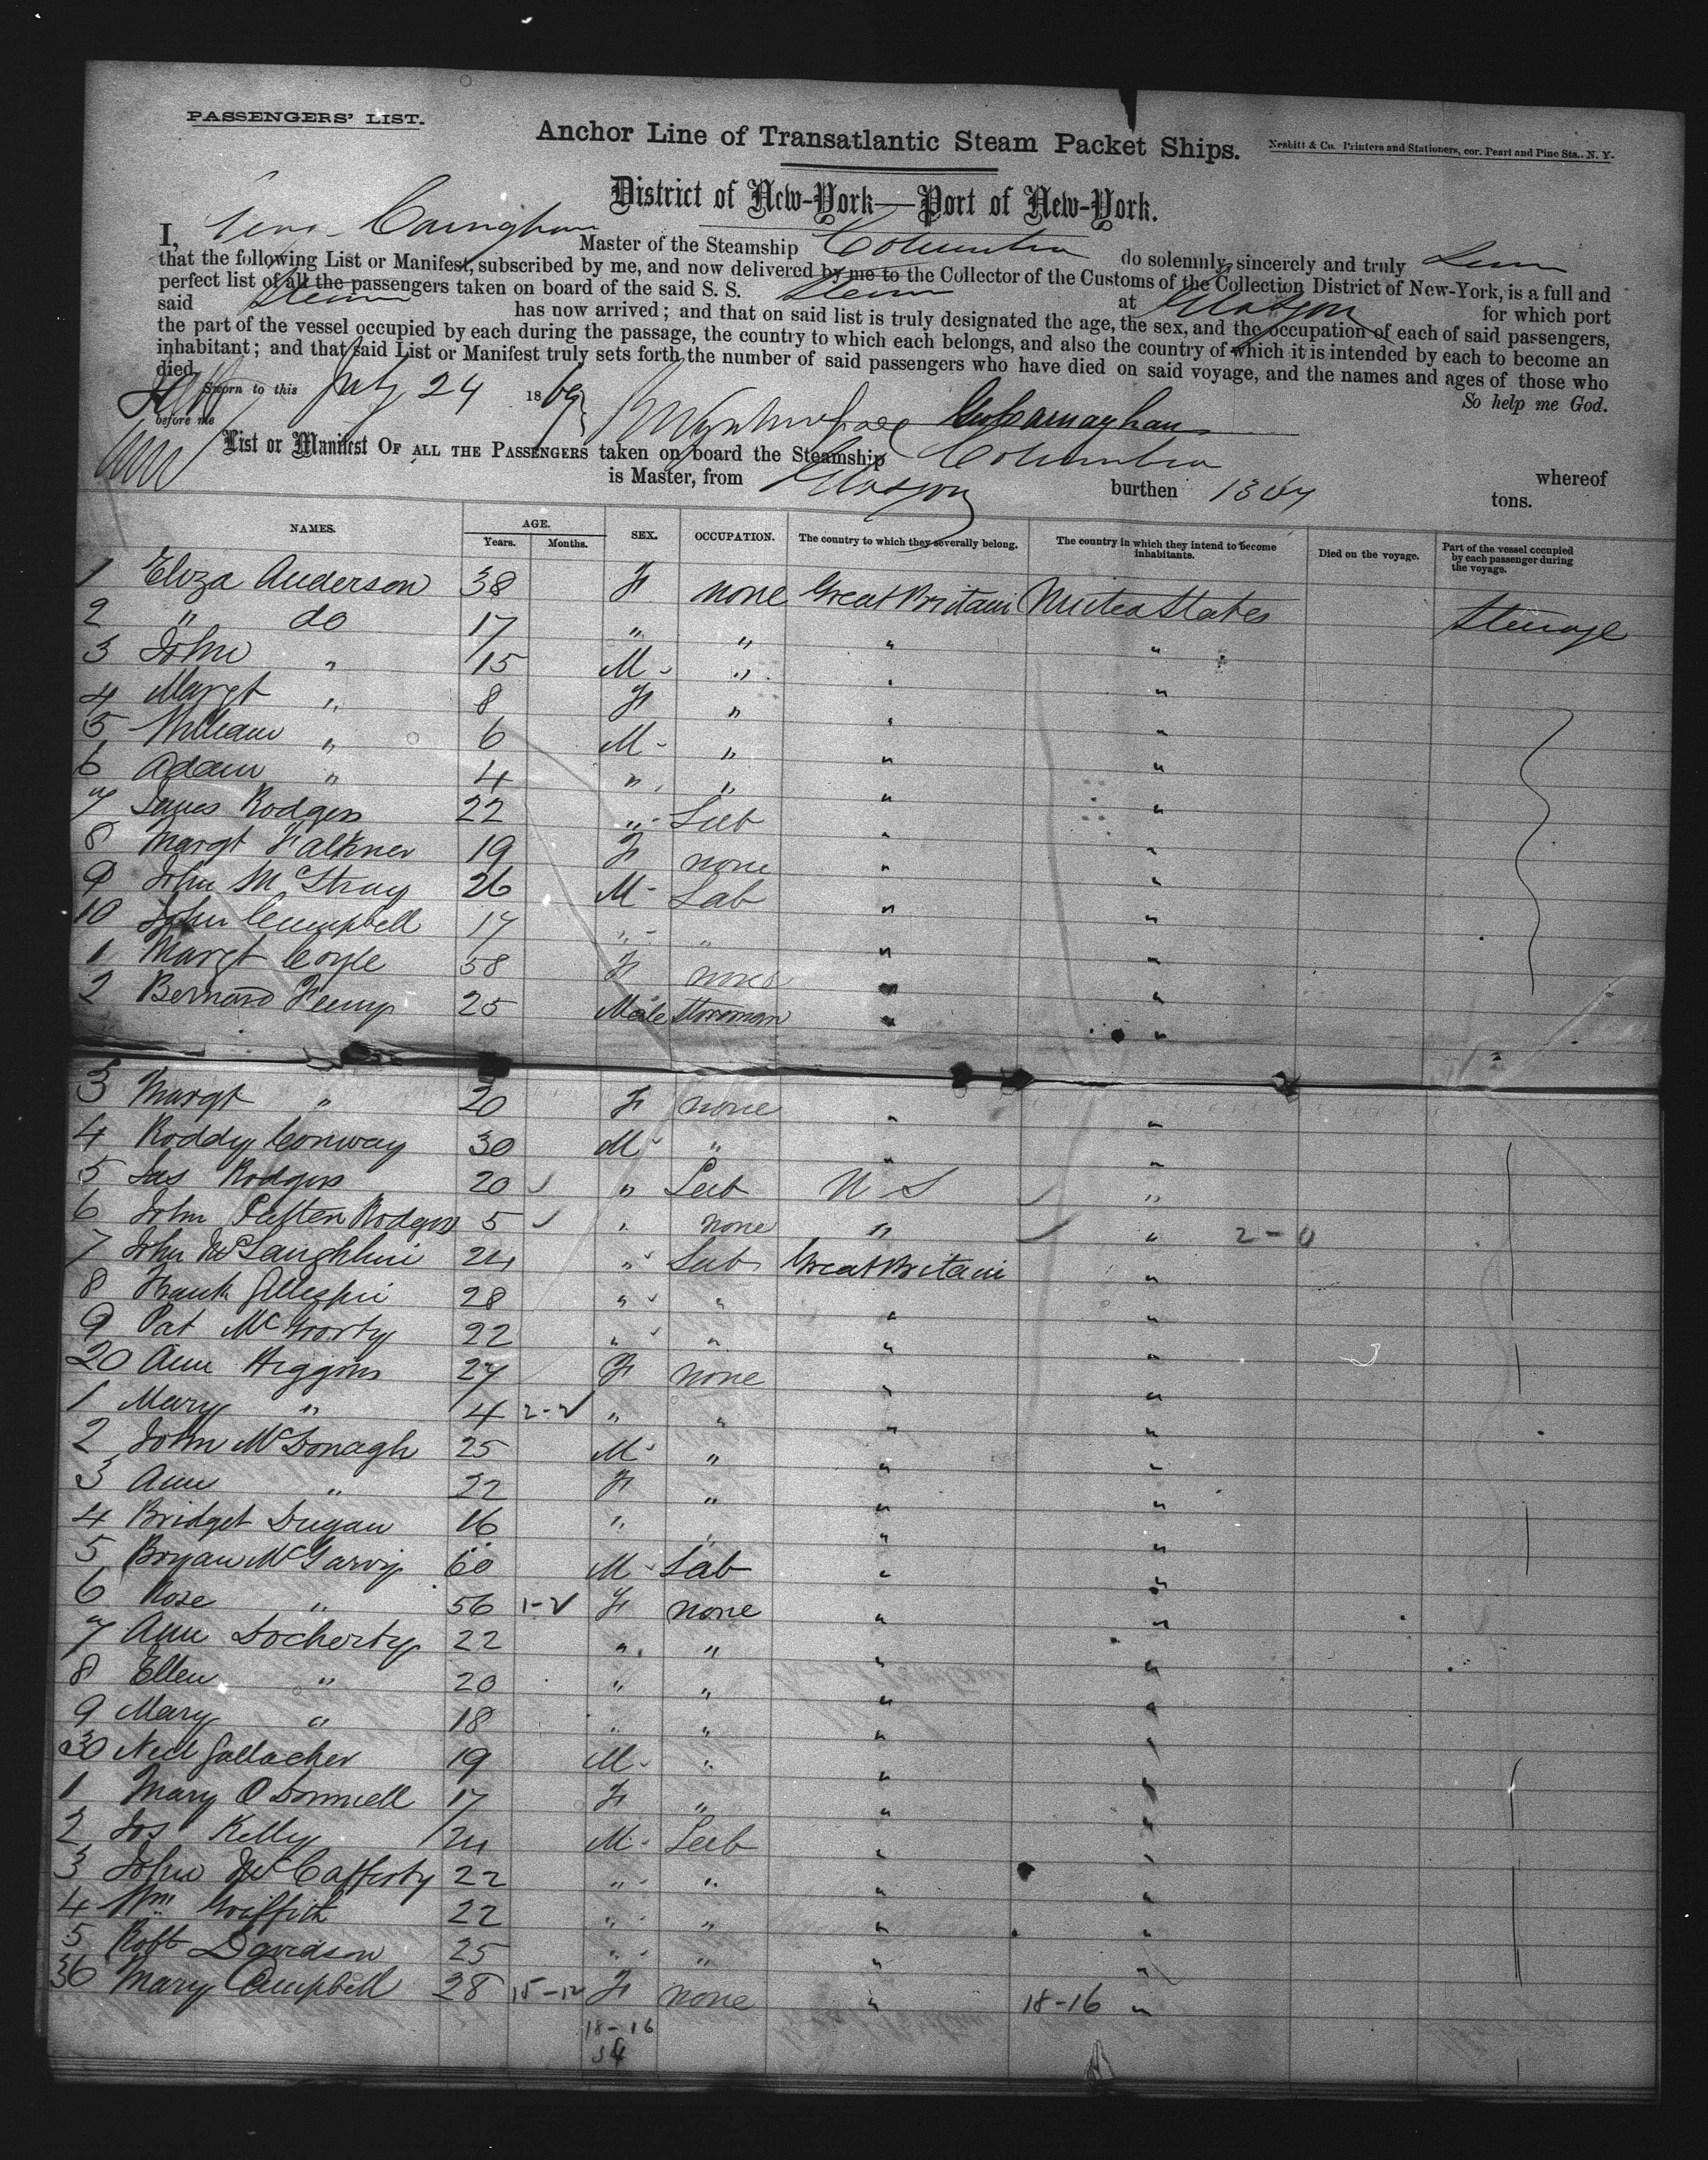 PASSENGERS' LIST.
Anchor Line of Transatlantic Steam Packet Ships.
Nesbitt & Co. Printers and Stationers, cor. Pearl and Pine Sts., N. Y.
District of New-York—Port of New-York.
I, Master of the Steamship Columbia do solemnly, sincerely and truly
that the following List or Manifest, subscribed by me, and now delivered by me to the Collector of the Customs of the Collection District of New-York, is a full and
perfect list of all the passengers taken on board of the said S. S. at Glasgow for which port
said has now arrived; and that on said list is truly designated the age, the sex, and the occupation of each of said passengers,
the part of the vessel occupied by each during the passage, the country to which each belongs, and also the country of which it is intended by each to become an
inhabitant; and that said List or Manifest truly sets forth the number of said passengers who have died on said voyage, and the names and ages of those who
died. So help me God.
Sworn to this July 24 1869
before me
List or Manifest OF ALL THE PASSENGERS taken on board the Steamship Columbia whereof
is Master, from Glasgow burthen tons.
NAMES. AGE. Years. Months. SEX. OCCUPATION. The country to which they severally belong. The country in which they intend to become inhabitants. Died on the voyage. Part of the vessel occupied by each passenger during the voyage.
1 Eliza Anderson 38 F none Great Britain United States Steerage
2 " do 17 " " " "
3 John " 15 M " " "
4 Margt " 8 F " " "
5 William " 6 M " " "
6 Adam " 4 " " " "
7 James Rodgers 22 " Lab " "
8 Margt Falkner 19 F none " "
9 John 26 M Lab " "
10 John Campbell 17 " " " "
1 Margt Coyle 58 F none " "
2 Bernard 25 Male " "
3 Margt " 20 F none " "
4 Roddy Conway 30 M " " "
5 Jas Rodgers 20 " Lab U S "
6 John Patten Rodgers 5 " none " " 2-0
7 John McLaughlin 24 " Lab Great Britain "
8 Frank Gillespie 28 " " " "
9 Pat McGrorty 22 " " " "
20 Ann Higgins 27 F none " "
1 Mary " 4 2-2 " " " "
2 John McDonagh 25 M " " "
3 Ann " 22 F " " "
4 Bridget Dugan 16 " " " "
5 Bryan McGarvy 60 M Lab " "
6 Rose " 56 F none " "
7 Ann Docherty 22 " " " "
8 Ellen " 20 " " " "
9 Mary " 18 " " " "
30 Neil Gallacher 19 M " " "
1 Mary O Donnell 17 F " " "
2 Jos Kelly 24 M Lab " "
3 John McCafferty 22 " " " "
4 Wm Griffith 22 " " " "
5 Robt Davidson 25 " " " "
36 Mary Campbell 28 15-12 F none " 18-16 "
18-16
34